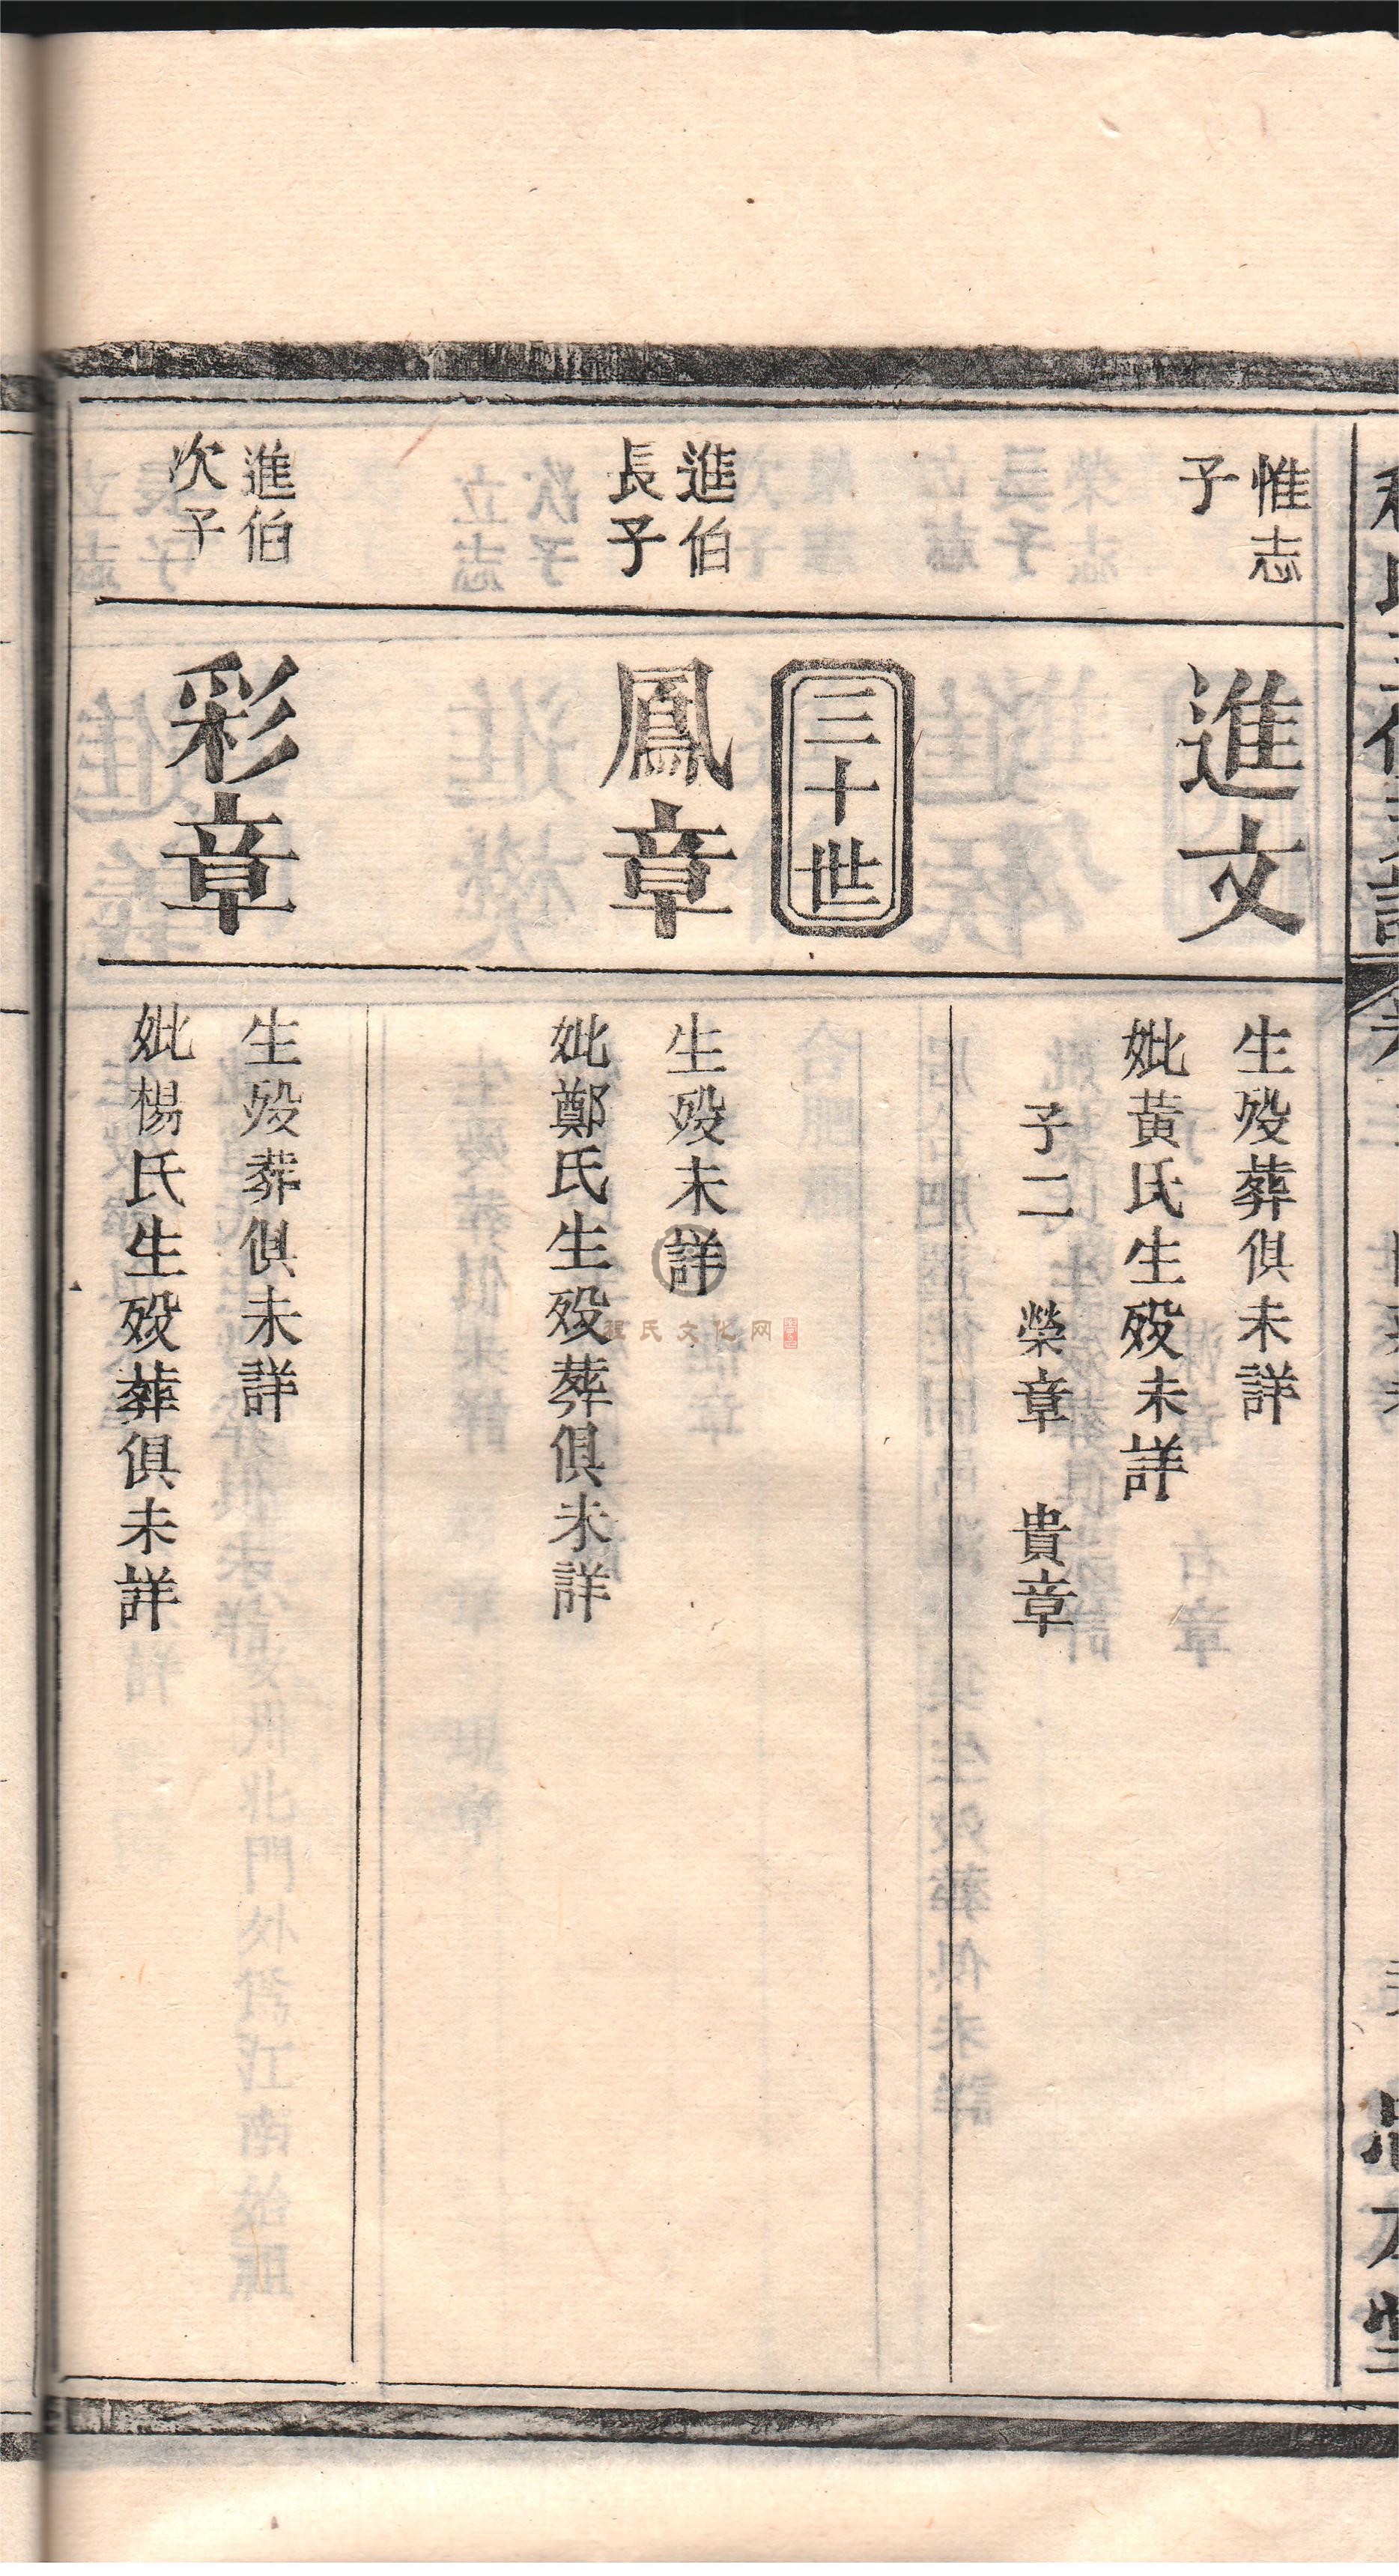 惟志
子
進文
生殁葬俱未詳
妣黃氏生殁未詳
子二 榮章 貴章
三十世
進伯
長子
鳳章
生殁未詳
妣鄭氏生殁葬俱未詳
進伯
次子
彩章
生殁葬俱未詳
妣楊氏生殁葬俱未詳
程氏文化网